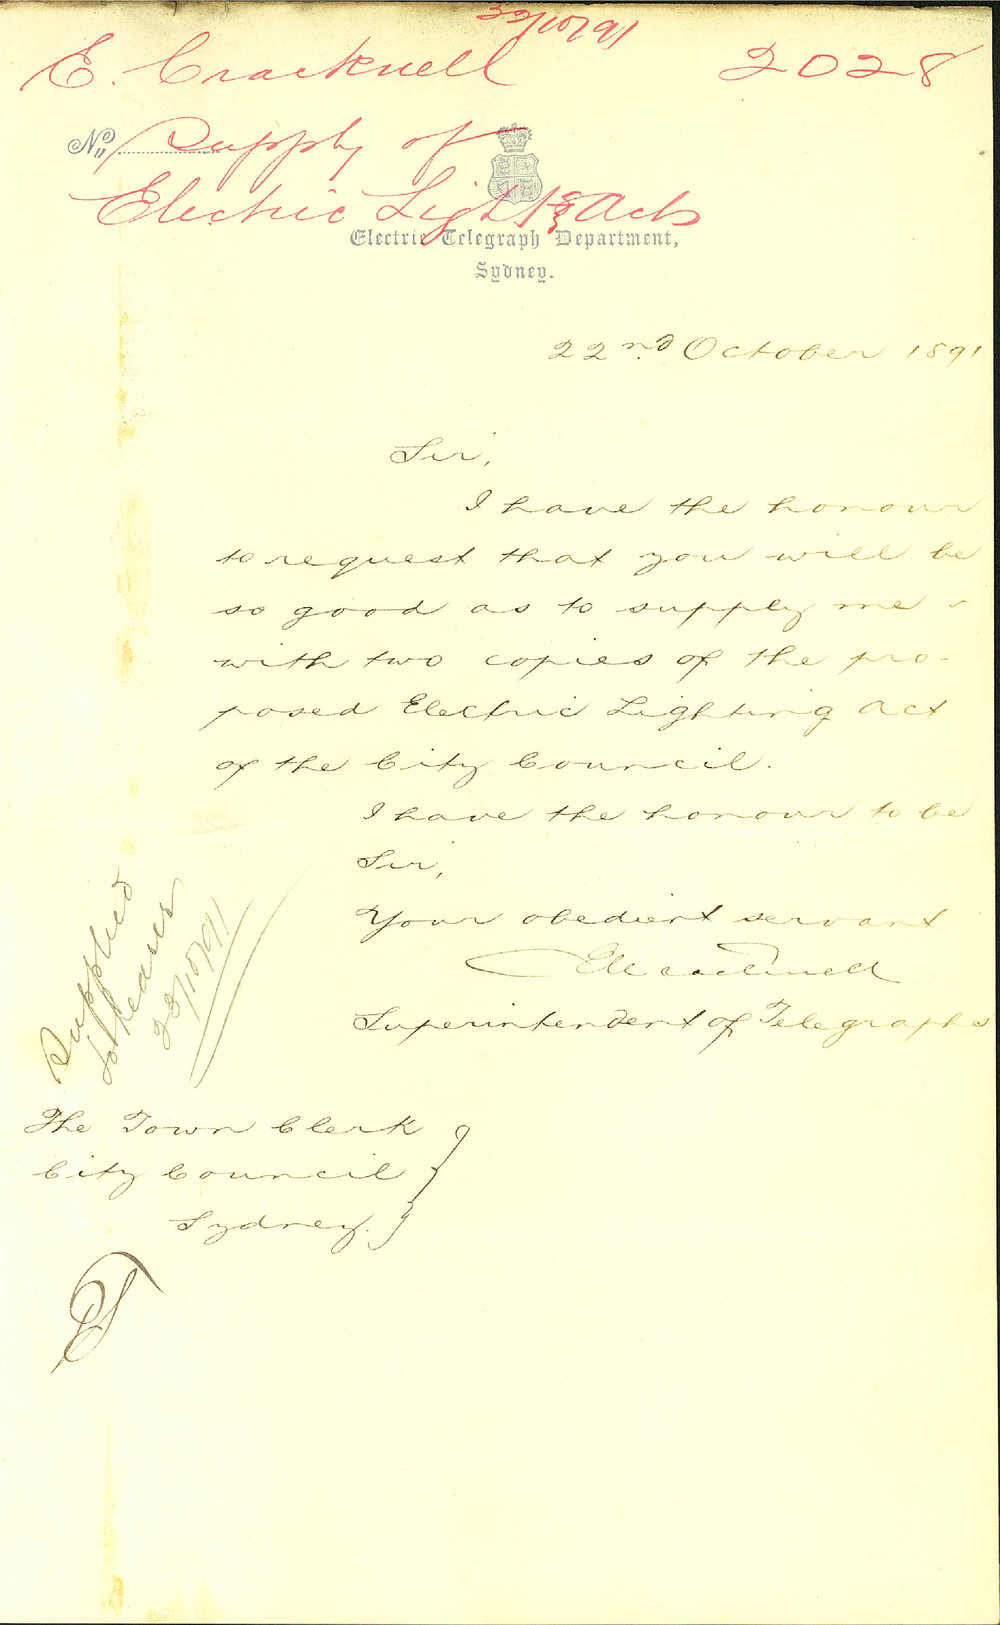 22/10/91
E. Cracknell 2028
No. Supply of
Electric Light Acts
Electric Telegraph Department,
Sydney.
22nd October 1891
Sir,
I have the honour
to request that you will be
so good as to supply me
with two copies of the pro-
posed Electric Lighting Act
of the City Council.
I have the honour to be
Sir,
Your obedient servant
E C Cracknell
Superintendent of Telegraphs
Supplied
23/10/91
The Town Clerk
City Council
Sydney.